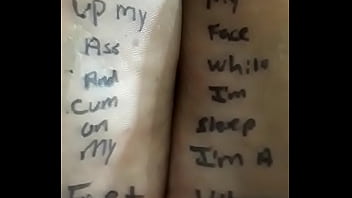 Up my
Ass
And
Cum
on
My
Feet
My
Face
while
I'm
sleep
I'm A